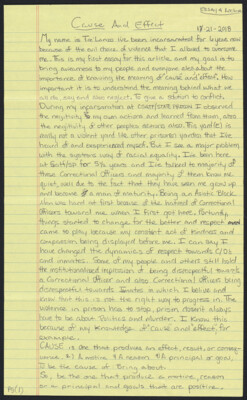 Cause And Effect
My name is Tre Lamar I've been incarcerated for 6 years now
because of the evil choice of violence that I allowed to consume
me. This is my first essay for this article, and my goal is to
bring awareness to my people and everyone else about the
importance of knowing the meaning of cause and effect. How
important it is to understand the meaning behind what we
as do, say and also neglect. To give a return to conflict.
During my incarceration at I observed
the negitivity to my own actions and learned from them, also
the negitivity of other peoples demons also. This yard is
really not a violent yard like other prisons yards that I've
heard of and experienced myself. But I see a major problem
with the systems way of racial equality. I've been here
at for 3½ years and I've talked to majority of
these Correctional Officers and majority of them know me
quiet, was due to the fact that they have seen me grow up
and become of a man of maturity. Being an Black
Man was hard at first because of the hatred of Correctional
Officers toward me when I first got here. Fortunatly
things started to change for the better and respect
came to play because my constant act of kindness and
compassion being displayed before me. I can say I
have changed the dynamics of respect towards C/Os
and inmates. Some of my people and others still hold
the institutionalized impression of being disrespectful towards
a Correctional Officer and also Correctional Officers being
disrespectful towards Inmates in which I believe and
know that this is not the right way to progress in. The
violence in prison has to stop, prison doesn't always
has to be about Politics and murder. I know this
because of my knowledge of cause and effect, for
example.
CAUSE is One that produces an effect, result, or conse-
quence. A motive A reason. A principal or goal.
To be the cause of: Bring about.
So, to be the one that produces a motive, reason
or a principal and goals that are positive.
Pg(1)